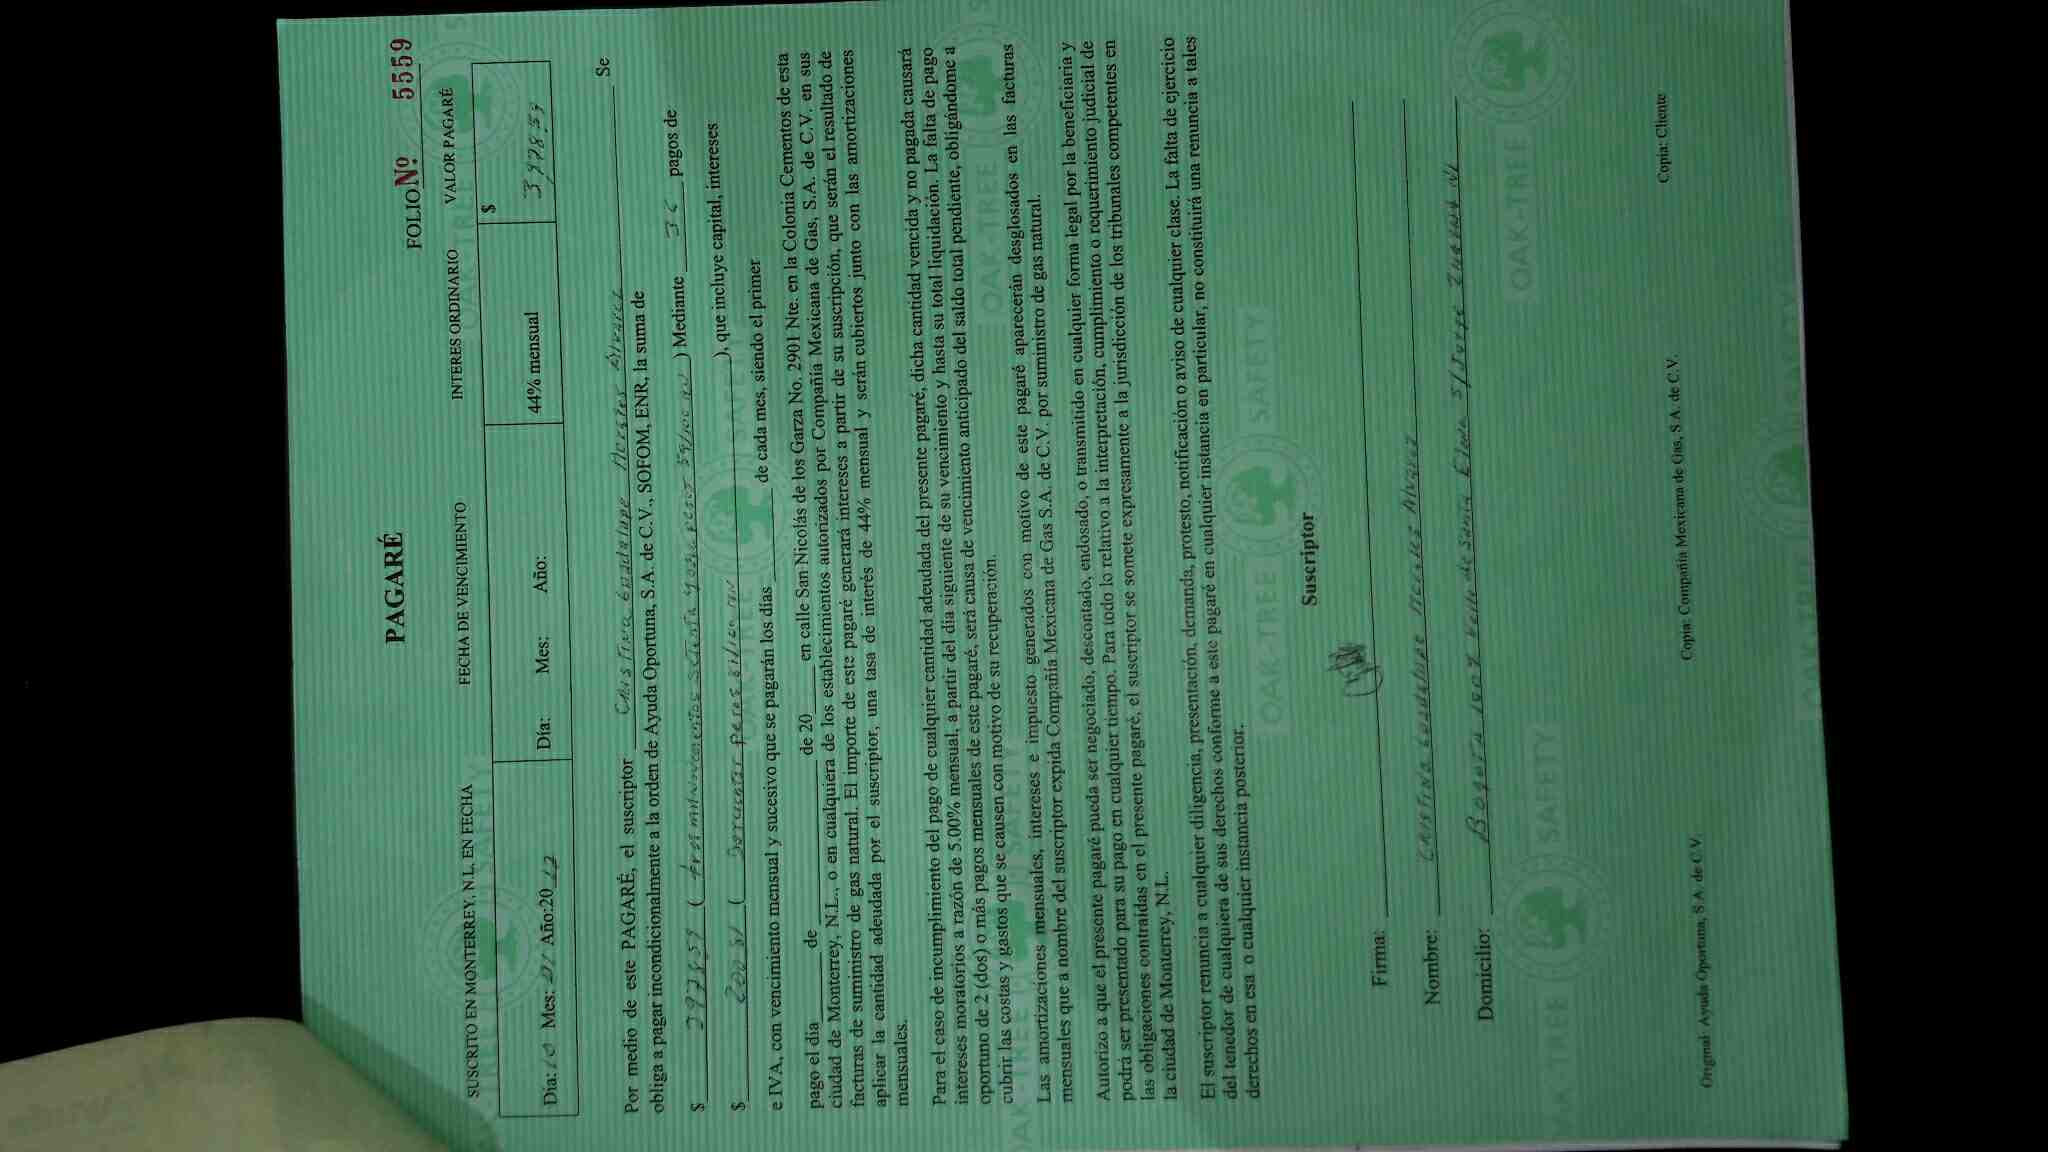 PAGARÉ
FOLIO Nº 5559
SUSCRITO EN MONTERREY, N.L. EN FECHA FECHA DE VENCIMIENTO INTERES ORDINARIO VALOR PAGARÉ
Día: 10 Mes: 01 Año:20 Día: Mes: Año: 44% mensual $
Por medio de este PAGARÉ, el suscriptor Cristina Guadalupe Morales Alvarez Se
obliga a pagar incondicionalmente a la orden de Ayuda Oportuna, S.A. de C.V., SOFOM, ENR, la suma de
$ ( ) Mediante 36 pagos de
$ 200 81 ( Doscientos pesos ), que incluye capital, intereses
e IVA, con vencimiento mensual y sucesivo que se pagarán los días de cada mes, siendo el primer
pago el día de de 20 en calle San Nicolás de los Garza No. 2901 Nte. en la Colonia Cementos de esta
ciudad de Monterrey, N.L., o en cualquiera de los establecimientos autorizados por Compañía Mexicana de Gas, S.A. de C.V. en sus
facturas de suministro de gas natural. El importe de este pagaré generará intereses a partir de su suscripción, que serán el resultado de
aplicar la cantidad adeudada por el suscriptor, una tasa de interés de 44% mensual y serán cubiertos junto con las amortizaciones
mensuales.
Para el caso de incumplimiento del pago de cualquier cantidad adeudada del presente pagaré, dicha cantidad vencida y no pagada causará
intereses moratorios a razón de 5.00% mensual, a partir del día siguiente de su vencimiento y hasta su total liquidación. La falta de pago
oportuno de 2 (dos) o más pagos mensuales de este pagaré, será causa de vencimiento anticipado del saldo total pendiente, obligándome a
cubrir las costas y gastos que se causen con motivo de su recuperación.
Las amortizaciones mensuales, intereses e impuesto generados con motivo de este pagaré aparecerán desglosados en las facturas
mensuales que a nombre del suscriptor expida Compañía Mexicana de Gas S.A. de C.V. por suministro de gas natural.
Autorizo a que el presente pagaré pueda ser negociado, descontado, endosado, o transmitido en cualquier forma legal por la beneficiaria y
podrá ser presentado para su pago en cualquier tiempo. Para todo lo relativo a la interpretación, cumplimiento o requerimiento judicial de
las obligaciones contraídas en el presente pagaré, el suscriptor se somete expresamente a la jurisdicción de los tribunales competentes en
la ciudad de Monterrey, N.L.
El suscriptor renuncia a cualquier diligencia, presentación, demanda, protesto, notificación o aviso de cualquier clase. La falta de ejercicio
del tenedor de cualquiera de sus derechos conforme a este pagaré en cualquier instancia en particular, no constituirá una renuncia a tales
derechos en esa o cualquier instancia posterior.
Suscriptor
Firma:
Nombre: Cristina Guadalupe Morales Alvarez
Domicilio: Bogota Valle de Santa Elena
Original: Ayuda Oportuna, S.A. de C.V. Copia: Compañía Mexicana de Gas, S.A. de C.V. Copia: Cliente
OAK-TREE SAFETY